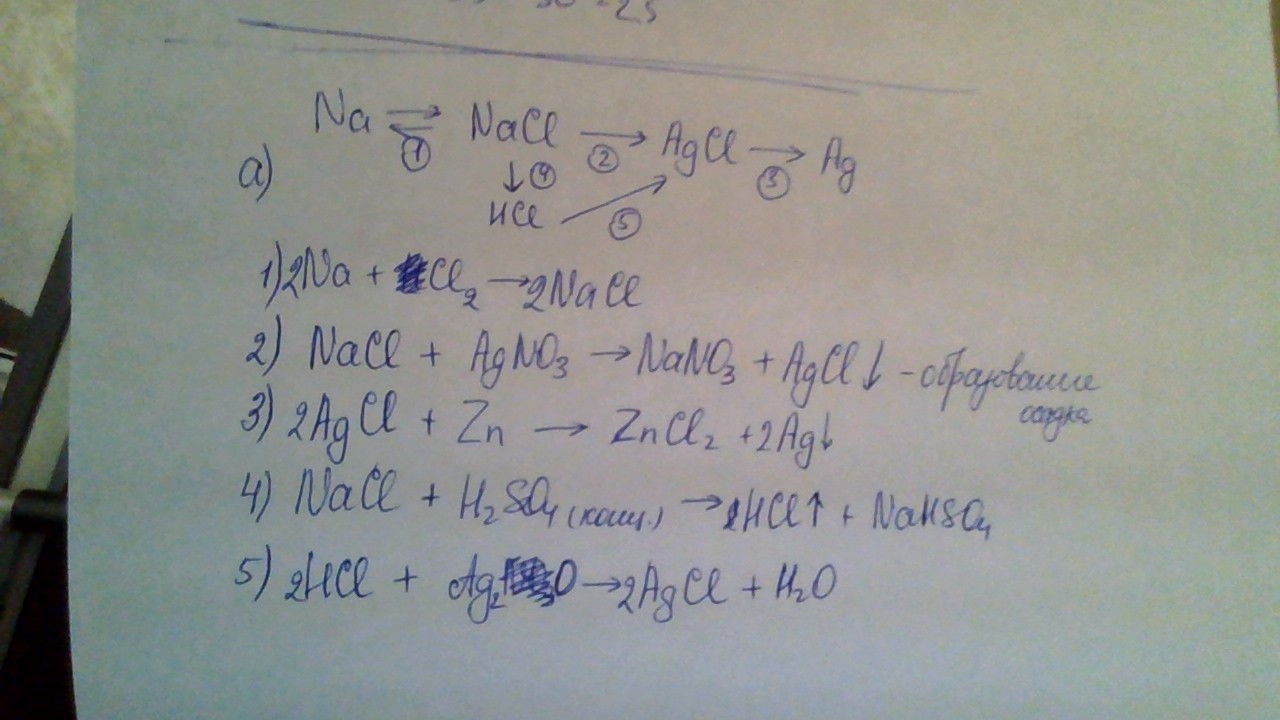 Na ⇄ NaCl → AgCl → Ag
① ② ③
а)
↓ ④
HCl ↗ ⑤
1) 2Na + Cl₂ → 2NaCl
2) NaCl + AgNO₃ → NaNO₃ + AgCl↓ - образование
осадка
3) 2AgCl + Zn → ZnCl₂ + 2Ag↓
4) NaCl + H₂SO₄ (конц.) → HCl↑ + NaHSO₄
5) 2HCl + Ag₂O → 2AgCl + H₂O